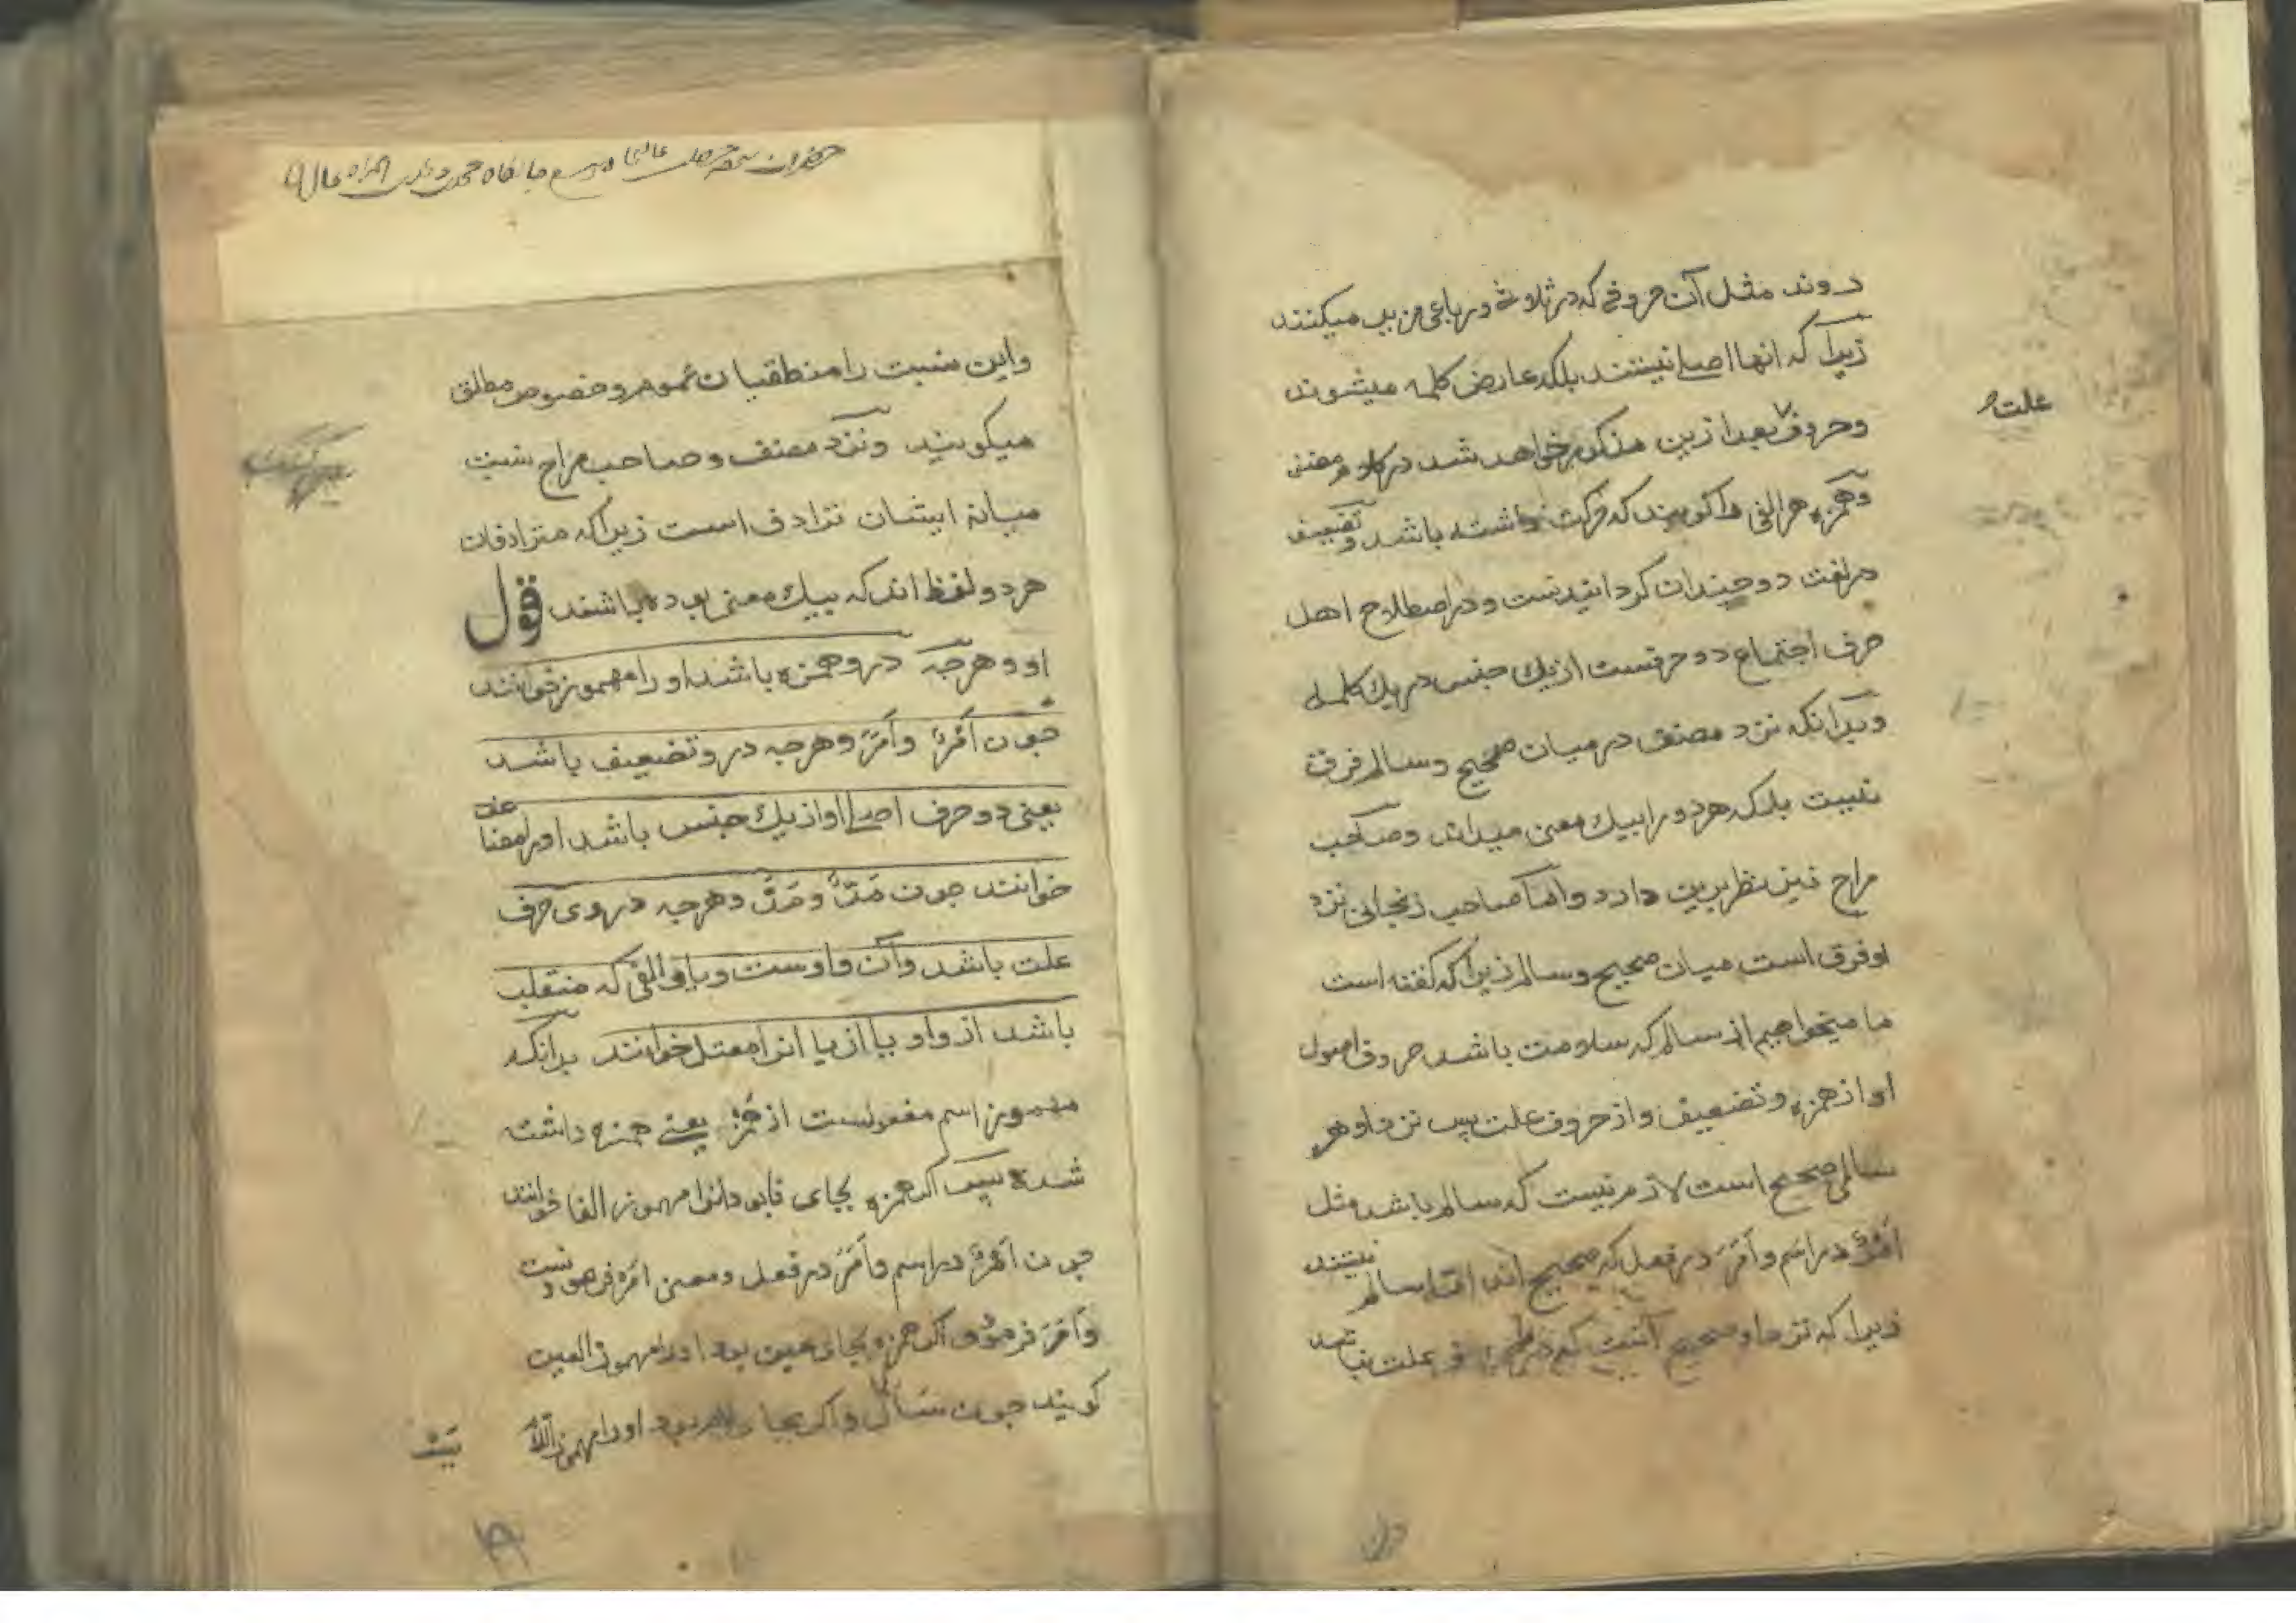 دوند مثل آن حروفی که در ثلاثی و رباعی مزید میکنند
زیرا که انها اصلی نیستند بلکه عارض کلمه میشوند
علت
وحروف بعد ازین مذکور خواهد شد در کلام مصنف
وهمزه هر الفی را گویند که حرکت داشته باشد وتضعیف
در لغت دو چندان کردانیدنست و در اصطلاح اهل
صرف اجتماع دو حرفست از یك جنس در یك کلمه
وبدانکه نزد مصنف در میان صحیح وسالم فرق
نیست بلکه هر دو را بیك معنی میداند وصاحب
مراح نیز نظر برین دارد واما صاحب زنجانی نزد
او فرق است میان صحیح وسالم زیرا که گفته است
ما میخواهیم از سالم که سلامت باشد حروف اصول
او از همزه وتضعیف واز حروف علت پس نزد او هر
سالمی صحیح است لازم نیست که سالم باشد مثل
اَمْرٌ در اسم واَمَرَ در فعل که صحیح اند اما سالم نیستند
زیرا که نزد او صحیح آنست که در حرف علت نباشد
واین نسبت را منطقیان عموم و خصوص مطلق
میکویند ونزد مصنف وصاحب مراح نسبت
میانۀ ایشان ترادف است زیرا که مترادفان
هر دو لفظ اند که بیك معنی بوده باشند قول
او وهرچه درو همزه باشد او را مهموز خوانند
چون اَمْرٌ واَمَرَ وهرچه درو تضعیف باشد
یعنی دو حرف اصلی او از یك جنس باشد اورا مضاعف
خوانند چون مَدٌّ ومَدَّ وهرچه در وی حرف
علت باشد وآن واوست ویا والفی که منقلب
باشد از واو یا از یا انرا معتل خوانند بدانکه
مهموز اسم مفعولست از همز یعنی همزه داشته
شده پس اکر همزه بجای فا بود انرا مهموز الفا خوانند
چون اَمْرٌ در اسم واَمَرَ در فعل ومعنی امر فرمودنست
واَمَرَ فرمود و اکر همزه بجای عین بود اورا مهموز العین
کویند چون سَأَلَ واکر بجای لام بود اورا مهموز اللام